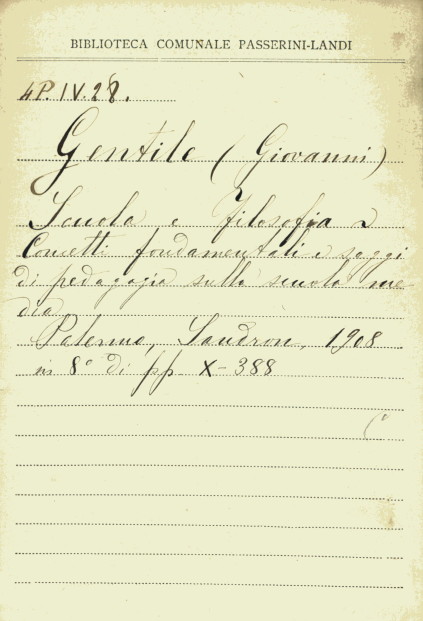 BIBLIOTECA COMUNALE PASSERINI-LANDI
4P.IV.28.
Gentile (Giovanni)
Scuola e Filosofia
Concetti fondamentali e saggi
di pedagogia sulla scuola me
dia
Palermo, Sandron, 1908
in 8° di pp. X-388